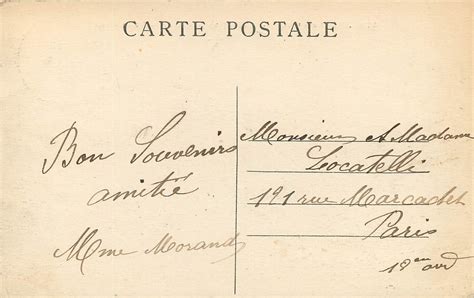 CARTE POSTALE
Bon Souvenirs
amitié
Mme Morand
Monsieur et Madame
Locatelli
191 rue Marcadet
Paris
18 em ard